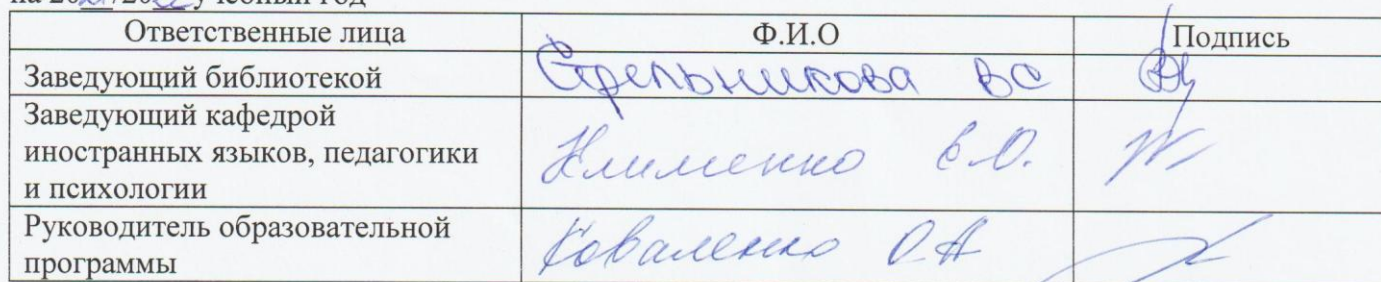 учебный год
Ответственные лица Ф.И.О Подпись
Заведующий библиотекой Стрельникова ВС
Заведующий кафедрой
иностранных языков, педагогики
и психологии Клименко Е.О.
Руководитель образовательной
программы Коваленко О.А